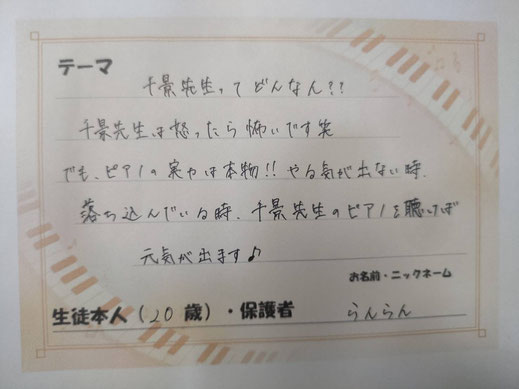 テーマ
千景先生ってどんなん??
千景先生は怒ったら怖いです笑
でも、ピアノの実力は本物!!やる気が出ない時、
落ち込んでいる時、千景先生のピアノを聴けば
元気が出ます♪
お名前・ニックネーム
生徒本人(20歳)・保護者 らんらん